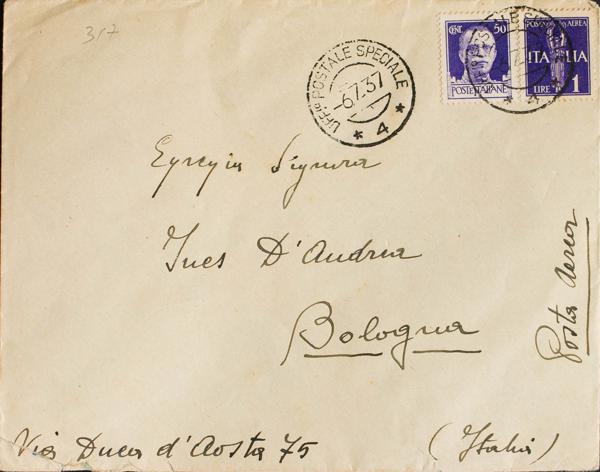 317
UFFIO POSTALE SPECIALE
-6.7.37
* 4 *
CENT. 50
POSTE ITALIANE
POSTA AEREA
ITALIA
LIRE 1
4
Egregia Signora
Ines D'Andrea
Bologna
Posta Aerea
Via Duca d'Aosta 75
(Italia)